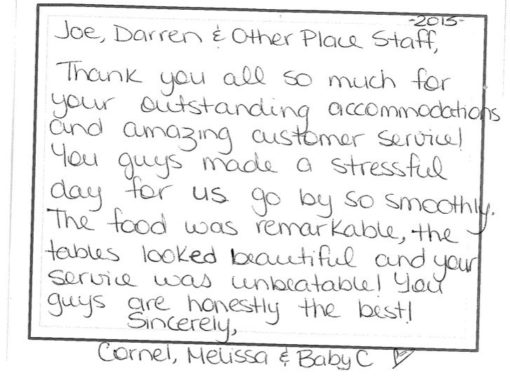 -2015-
Joe, Darren & Other Place Staff,
Thank you all so much for
your outstanding accommodations
and amazing customer service!
You guys made a stressful
day for us go by so smoothly.
The food was remarkable, the
tables looked beautiful and your
service was unbeatable! You
guys are honestly the best!
Sincerely,
Cornel, Melissa & Baby C